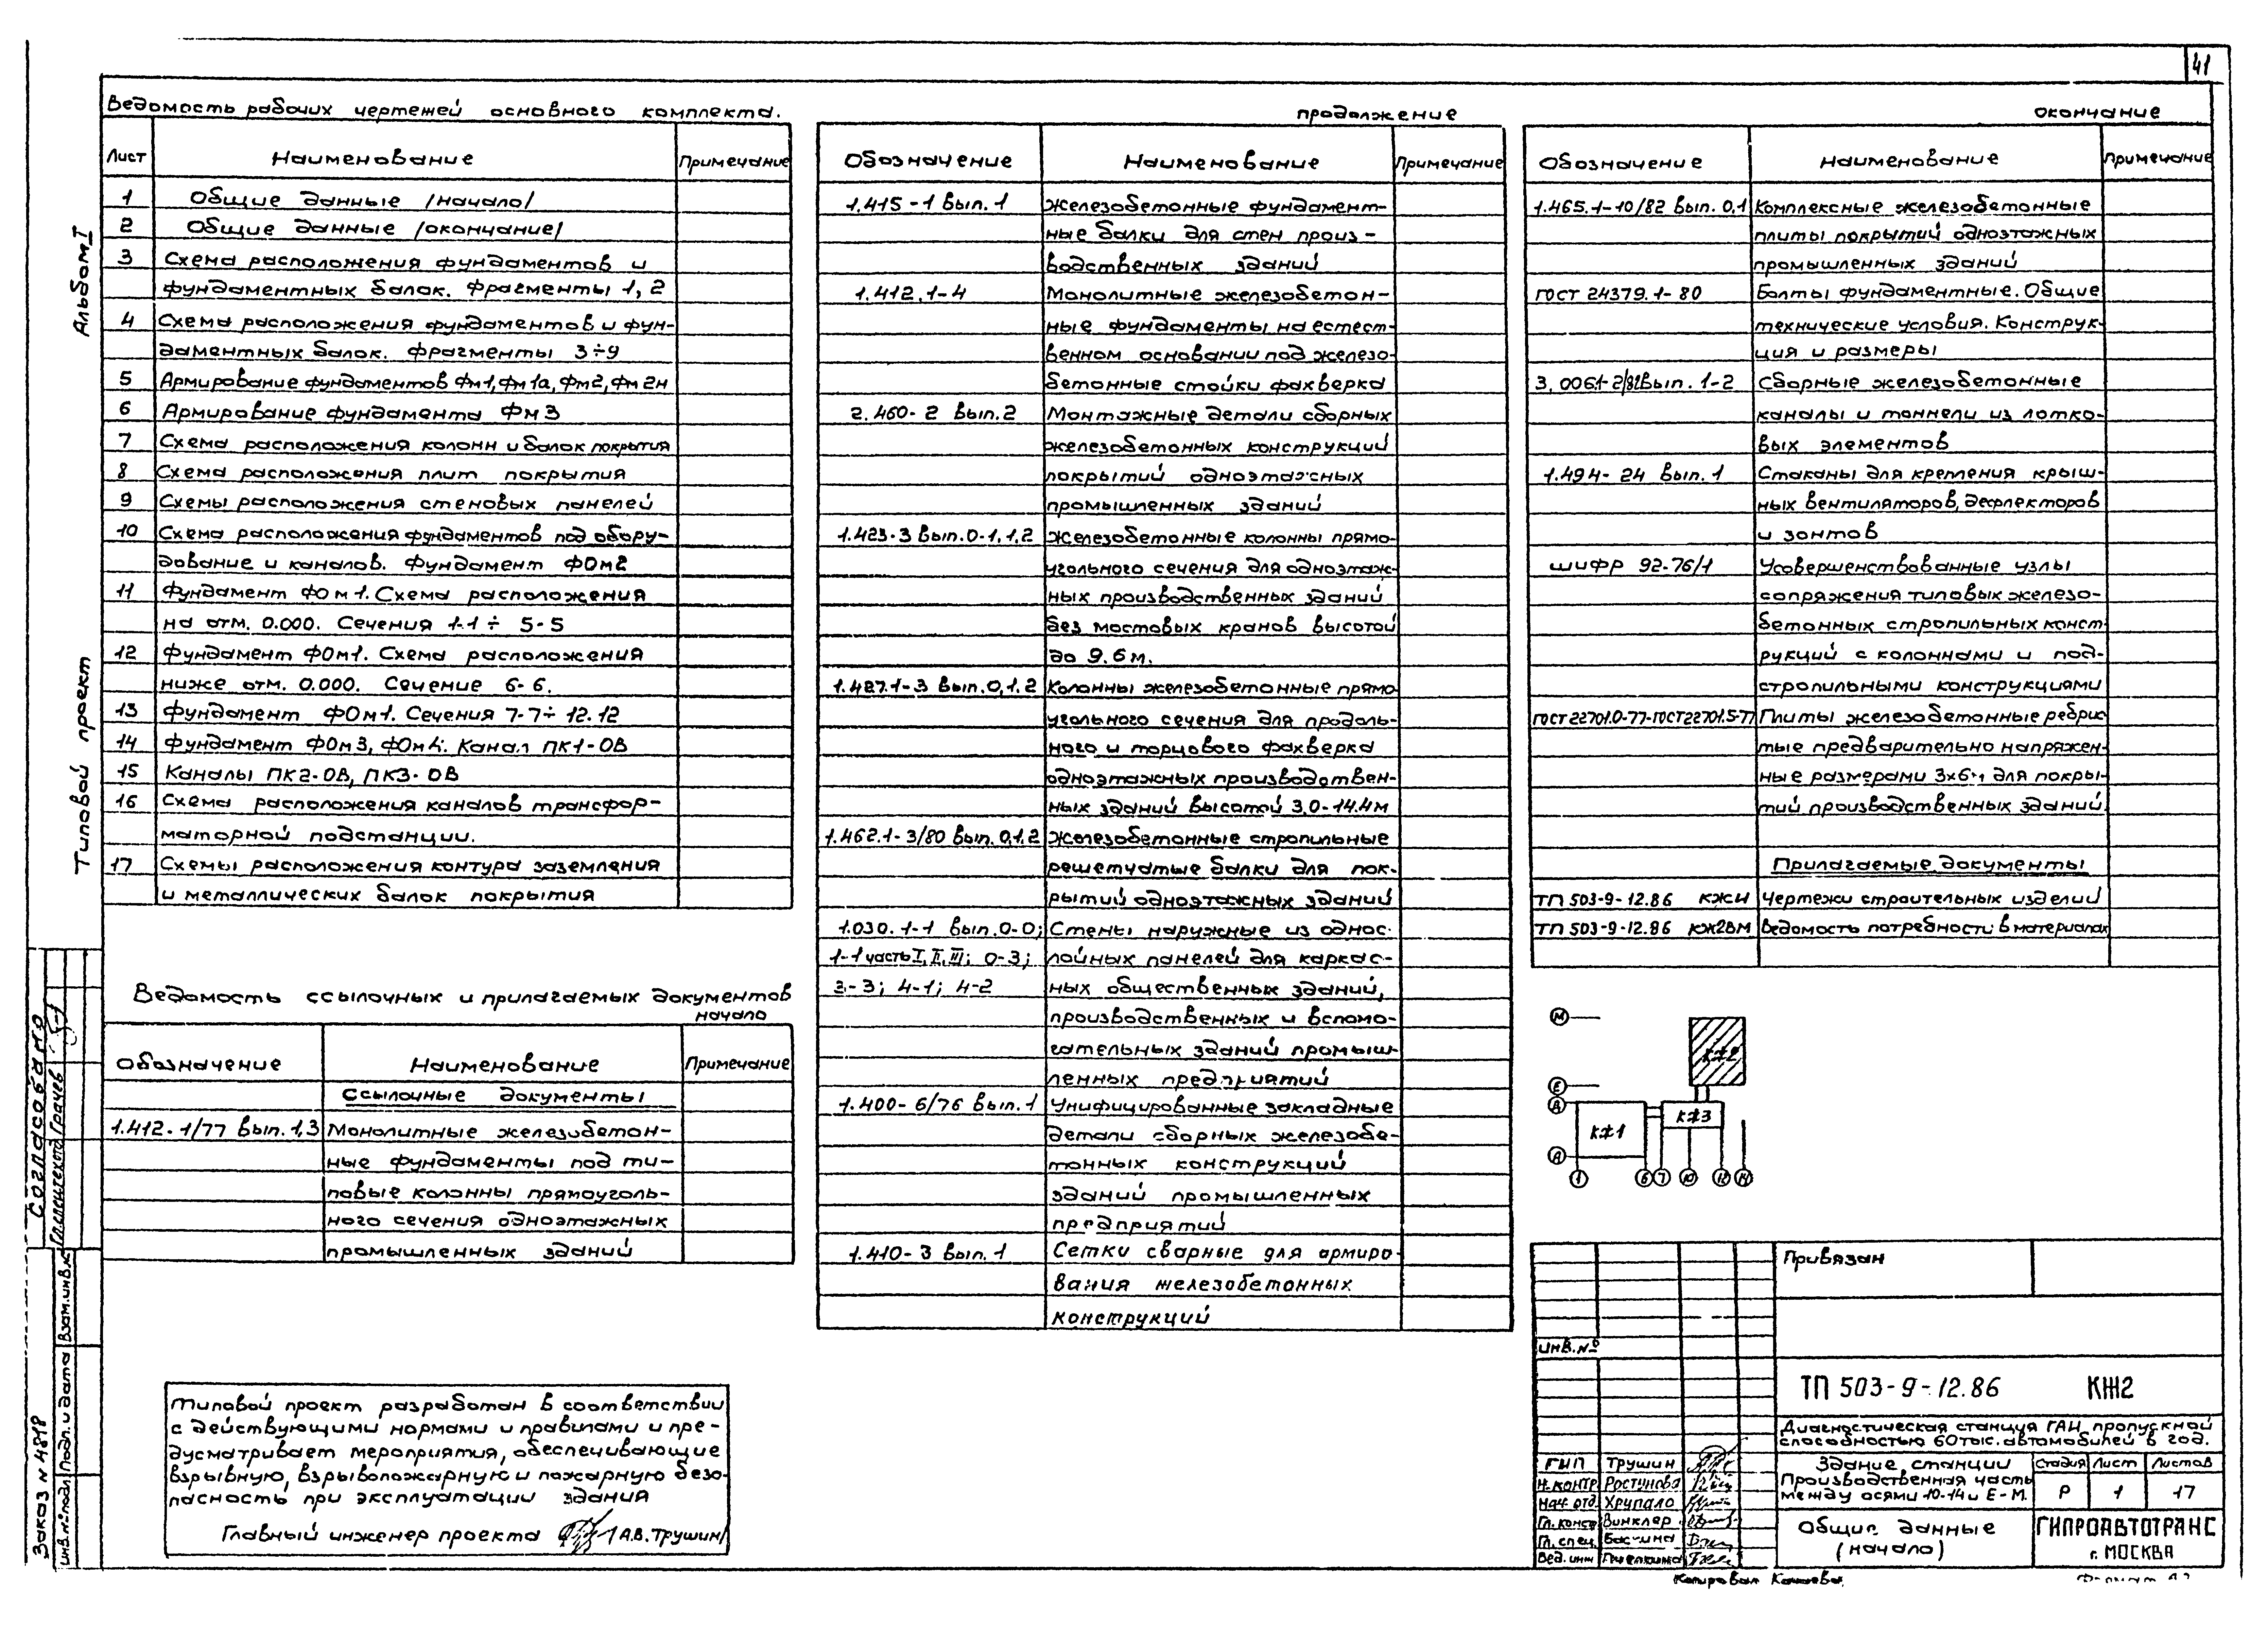 41
Ведомость рабочих чертежей основного комплекта.
Лист Наименование Примечание
1 Общие данные /начало/
2 Общие данные /окончание/
3 Схема расположения фундаментов и
фундаментных балок. Фрагменты 1, 2
4 Схема расположения фундаментов и фун-
даментных балок. Фрагменты 3÷9
5 Армирование фундаментов Фм1, Фм1а, Фм2, Фм2н
6 Армирование фундамента Фм3
7 Схема расположения колонн и балок покрытия
8 Схема расположения плит покрытия
9 Схемы расположения стеновых панелей
10 Схема расположения фундаментов под обору-
дование и каналов. Фундамент ФОм2
11 Фундамент ФОм1. Схема расположения
на отм. 0.000. Сечения 1-1 ÷ 5-5
12 Фундамент ФОм1. Схема расположения
ниже отм. 0.000. Сечение 6-6.
13 Фундамент ФОм1. Сечения 7-7 ÷ 12-12
14 Фундамент ФОм3, ФОм4. Канал ПК1-ОВ
15 Каналы ПК2-ОВ, ПК3-ОВ
16 Схема расположения каналов трансфор-
маторной подстанции.
17 Схемы расположения контура заземления
и металлических балок покрытия
Ведомость ссылочных и прилагаемых документов
начало
Обозначение Наименование Примечание
Ссылочные документы
1.412-1/77 Вып.1,3 Монолитные железобетон-
ные фундаменты под ти-
повые колонны прямоуголь-
ного сечения одноэтажных
промышленных зданий
Типовой проект разработан в соответствии
с действующими нормами и правилами и пре-
дусматривает мероприятия, обеспечивающие
взрывную, взрывопожарную и пожарную безо-
пасность при эксплуатации здания
Главный инженер проекта /А.В.Трушин/
продолжение
Обозначение Наименование Примечание
1.415-1 Вып.1 Железобетонные фундамент-
ные балки для стен произ-
водственных зданий
1.412.1-4 Монолитные железобетон-
ные фундаменты на естест-
венном основании под железо-
бетонные стойки фахверка
2.460-2 Вып.2 Монтажные детали сборных
железобетонных конструкций
покрытий одноэтажных
промышленных зданий
1.423-3 Вып.0-1,1,2 Железобетонные колонны прямо-
угольного сечения для одноэтаж-
ных производственных зданий
без мостовых кранов высотой
до 9.6м.
1.427.1-3 Вып.0,1,2 Колонны железобетонные прямо
угольного сечения для продоль-
ного и торцового фахверка
одноэтажных производствен-
ных зданий высотой 3,0-14.4м
1.462.1-3/80 Вып.0,1,2 Железобетонные стропильные
решетчатые балки для пок-
рытий одноэтажных зданий
1.030.1-1 Вып.0-0; Стены наружные из однос-
1-1 часть I, II, III; 0-3; лойных панелей для каркас-
3-3; 4-1; 4-2 ных общественных зданий,
производственных и вспомо-
гательных зданий промыш-
ленных предприятий
1.400-6/76 Вып.1 Унифицированные закладные
детали сборных железобе-
тонных конструкций
зданий промышленных
предприятий
1.410-3 Вып.1 Сетки сварные для армиро-
вания железобетонных
конструкций
окончание
Обозначение Наименование Примечание
1.465.1-10/82 Вып.0,1 Комплексные железобетонные
плиты покрытий одноэтажных
промышленных зданий
ГОСТ 24379.1-80 Болты фундаментные. Общие
технические условия. Конструк-
ция и размеры
3.006.1-2/82 Вып.1-2 Сборные железобетонные
каналы и тоннели из лотко-
вых элементов
1.494-24 Вып.1 Стаканы для крепления крыш-
ных вентиляторов, дефлекторов
и зонтов
шифр 92-76/1 Усовершенствованные узлы
сопряжения типовых железо-
бетонных стропильных конст-
рукций с колоннами и под-
стропильными конструкциями
ГОСТ22701.0-77-ГОСТ22701.5-77 Плиты железобетонные ребрис
тые предварительно напряжен-
ные размерами 3х6м для покры-
тий производственных зданий.
Прилагаемые документы
ТП 503-9-12.86 КЖИ Чертежи строительных изделий
ТП 503-9-12.86 КЖ2ВМ Ведомость потребности в материалах
М
Е
В
А
КЖ2
КЖ1
КЖ3
1 6 7 10 12 14
Привязан
инв.№
ТП 503-9-12.86 КЖ2
Диагностическая станция ГАИ, пропускной
способностью 60тыс.автомобилей в год.
Здание станции
Производственная часть
между осями 10-14 и Е-М.
Стадия Лист Листов
Р 1 17
Общие данные
(начало)
ГИПРОАВТОТРАНС
г. МОСКВА
ГИП Трушин
Н.контр Ростунова
Нач.отд Хрупало
Гл.конст Винклер
Гл.спец.
Вед.инж
Копировал
Альбом I
Типовой проект
Согласовано
Грачев
Взам.инв.№
Подп. и дата
Инв.№подл
Заказ №4818